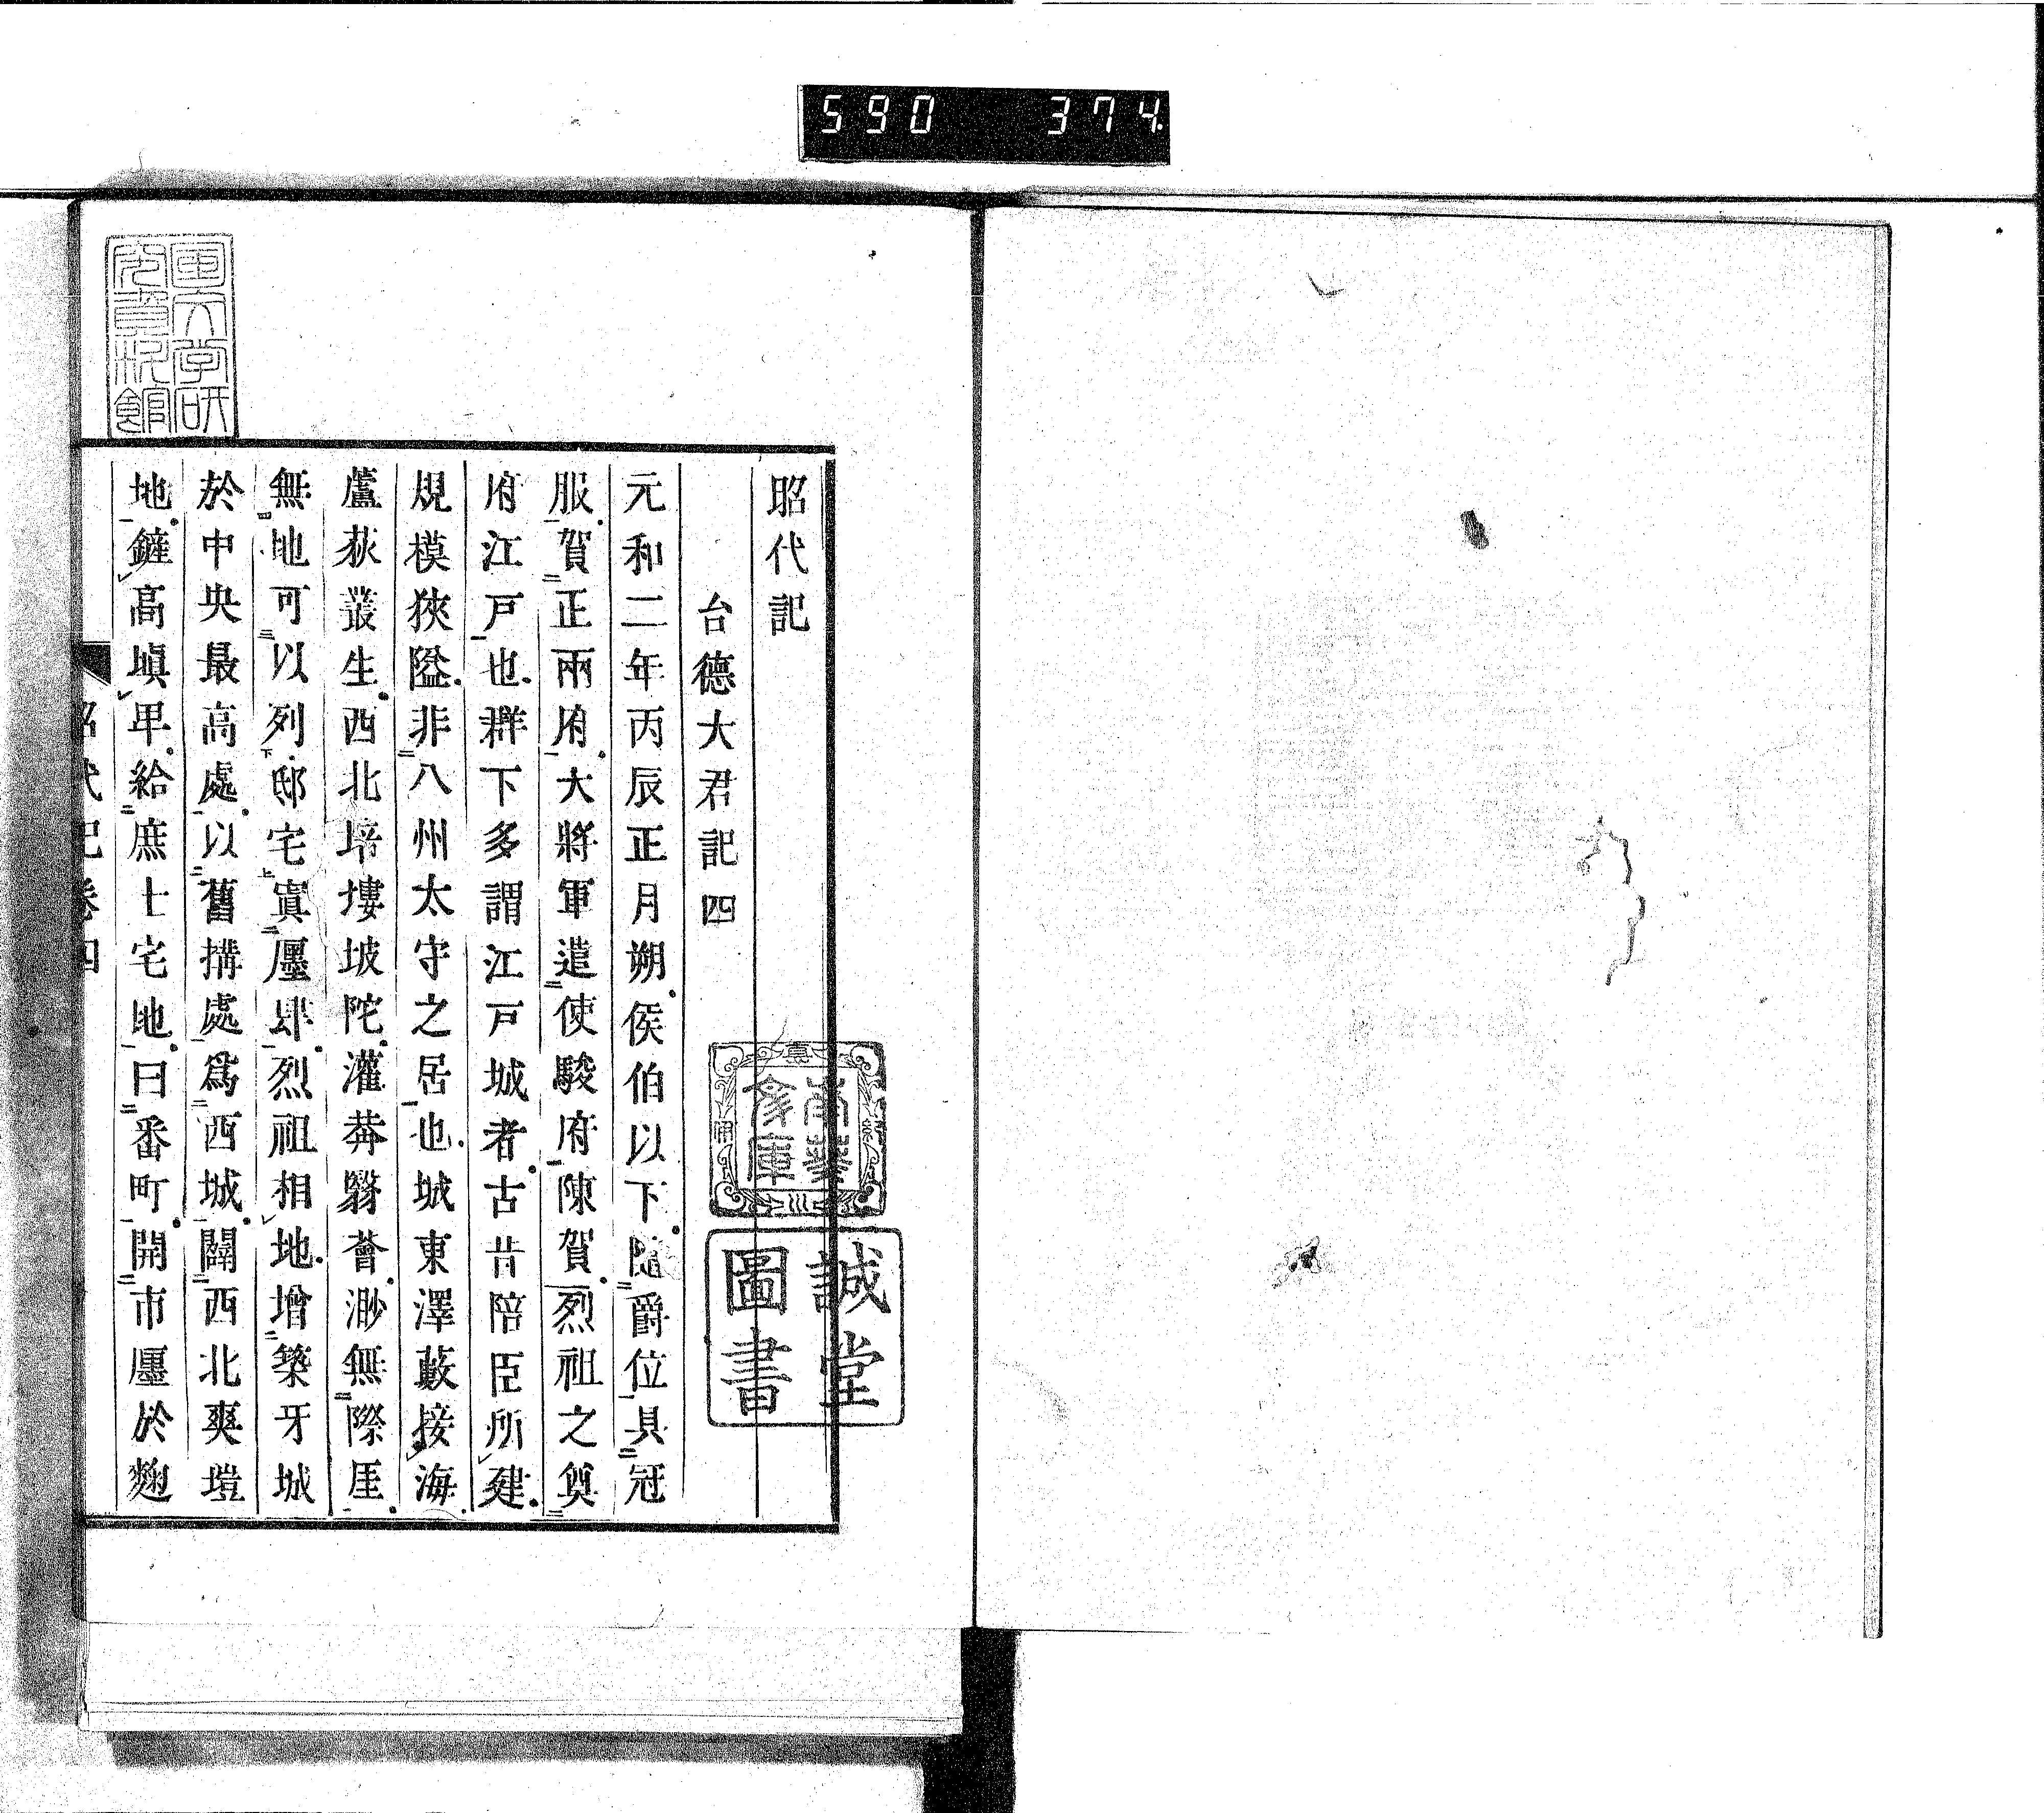 590 374
昭代記
台德大君記四
元和二年丙辰正月朔侯伯以下隨爵位具冠
服賀正兩府大將軍遣使駿府陳賀烈祖之奠
府江戸也群下多謂江戸城者古昔陪臣所建
規模狹隘非八州太守之居也城東澤藪接海
蘆荻叢生西北培塿坡陀灌莽翳薈渺無際厓
無地可以列邸宅寘廛肆烈祖相地增築牙城
於中央最高處以舊搆處爲西城闢西北爽塏
地鏟高塡卑給庶士宅地曰番町開市廛於麴
昭代記卷四
誠堂
圖書
國文学研
究資料館